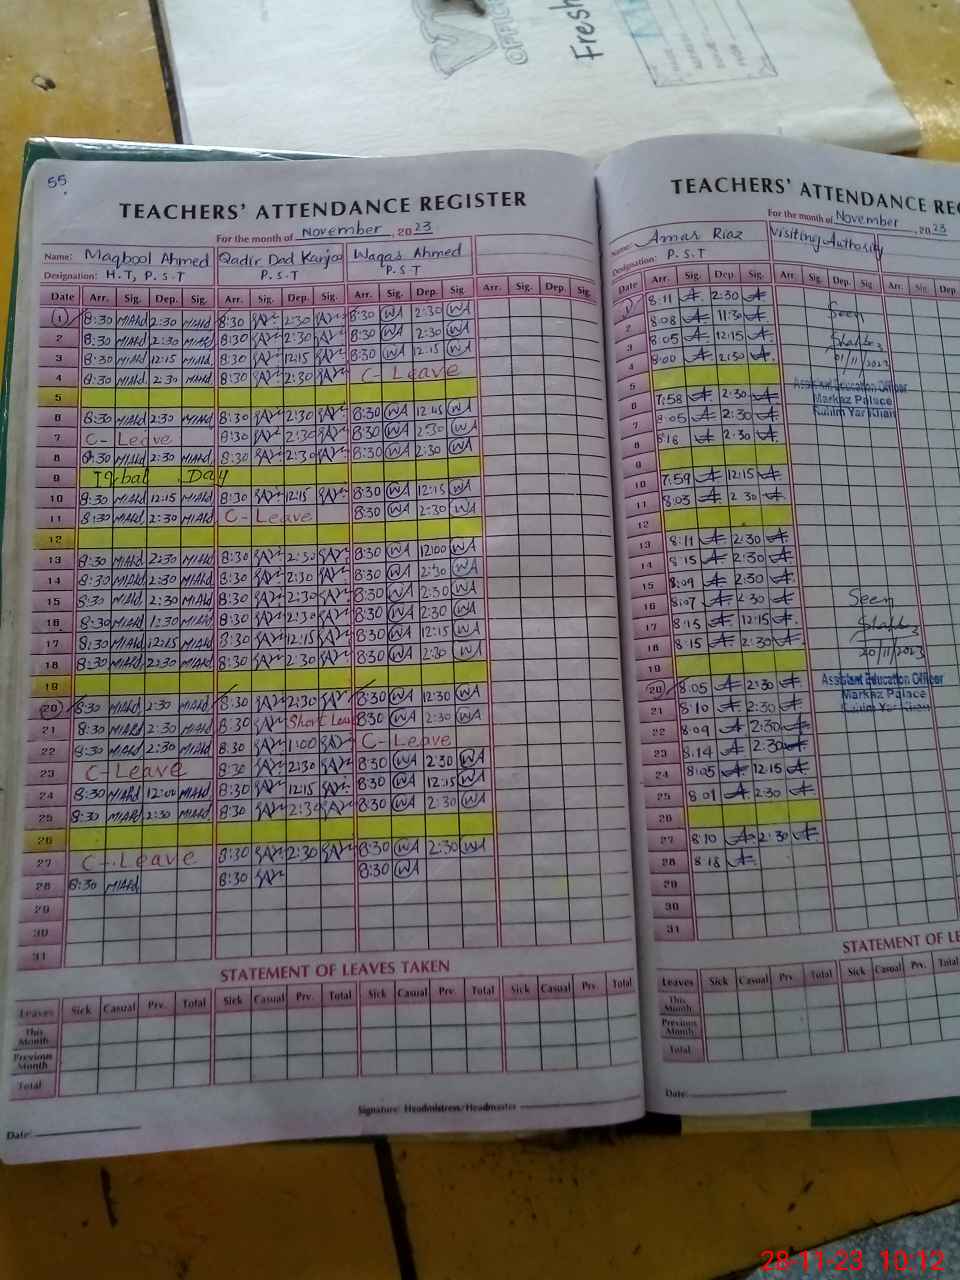 OFFICE
Fresh
55
TEACHERS' ATTENDANCE REGISTER
For the month of November, 2023
Name: Maqbool Ahmed Qadir Dad Kanjoo Waqas Ahmed
Designation: H.T, P.S.T P.S.T P.S.T
Date Arr. Sig. Dep. Sig. Arr. Sig. Dep. Sig. Arr. Sig. Dep. Sig. Arr. Sig. Dep. Sig.
1 8:30 MIAhd 2:30 MIAhd 8:30 2:30 8:30 WA 2:30 WA
2 8:30 MIAhd 2:30 MIAhd 8:30 2:30 8:30 WA 2:30 WA
3 8:30 MIAhd 12:15 MIAhd 8:30 12:15 8:30 WA 12:15 WA
4 8:30 MIAhd 2:30 MIAhd 8:30 2:30 C- Leave
5
6 8:30 MIAhd 2:30 MIAhd 8:30 2:30 8:30 WA 12:45 WA
7 C- Leave 8:30 2:30 8:30 WA 2:30 WA
8 8:30 MIAhd 2:30 MIAhd 8:30 2:30 8:30 WA 2:30 WA
9 Iqbal Day
10 8:30 MIAhd 12:15 MIAhd 8:30 12:15 8:30 WA 12:15 WA
11 8:30 MIAhd 2:30 MIAhd C- Leave 8:30 WA 2:30 WA
12
13 8:30 MIAhd 2:30 MIAhd 8:30 2:30 8:30 WA 12:00 WA
14 8:30 MIAhd 2:30 MIAhd 8:30 2:30 8:30 WA 2:30 WA
15 8:30 MIAhd 2:30 MIAhd 8:30 2:30 8:30 WA 2:30 WA
16 8:30 MIAhd 1:30 MIAhd 8:30 2:30 8:30 WA 2:30 WA
17 8:30 MIAhd 12:15 MIAhd 8:30 12:15 8:30 WA 12:15 WA
18 8:30 MIAhd 2:30 MIAhd 8:30 2:30 8:30 WA 2:30 WA
19
20 8:30 MIAhd 2:30 MIAhd 8:30 2:30 8:30 WA 12:30 WA
21 8:30 MIAhd 2:30 MIAhd 8:30 Short Leave 8:30 WA 2:30 WA
22 8:30 MIAhd 2:30 MIAhd 8:30 1:00 C- Leave
23 C-Leave 8:30 2:30 8:30 WA 2:30 WA
24 8:30 MIAhd 12:00 MIAhd 8:30 12:15 8:30 WA 12:15 WA
25 8:30 MIAhd 2:30 MIAhd 8:30 2:30 8:30 WA 2:30 WA
26
27 C-Leave 8:30 2:30 8:30 WA 2:30 WA
28 8:30 MIAhd 8:30 8:30 WA
29
30
31
STATEMENT OF LEAVES TAKEN
Leaves Sick Casual Prv. Total Sick Casual Prv. Total Sick Casual Prv. Total Sick Casual Prv. Total
This Month
Previous Month
Total
Signature: Headmistress/Headmaster
Date:
TEACHERS' ATTENDANCE REG
For the month of November, 2023
Name: Amar Riaz Visiting Authority
Designation: P.S.T
Date Arr. Sig. Dep. Sig. Arr. Sig. Dep. Sig. Arr. Sig. Dep
1 8:11 2:30
2 8:08 11:30
3 8:05 12:15
4 8:00 2:30
5
6 7:58 2:30
7 8:05 2:30
8 8:18 2:30
9
10 7:59 12:15
11 8:03 2:30
12
13 8:11 2:30
14 8:15 2:30
15 8:09 2:30
16 8:07 2:30
17 8:15 12:15
18 8:15 2:30
19
20 8:05 2:30
21 8:10 2:30
22 8:09 2:30
23 8:14 2:30
24 8:05 12:15
25 8:01 2:30
26
27 8:10 2:30
28 8:18
29
30
31
Seen
01/11/2023
Assistant Education Officer
Markaz Palace
Rahim Yar Khan
Seen
20/11/2023
Assistant Education Officer
Markaz Palace
Rahim Yar Khan
STATEMENT OF LE
Leaves Sick Casual Prv. Total Sick Casual Prv. Total
This Month
Previous Month
Total
Date:
28-11-23 10:12